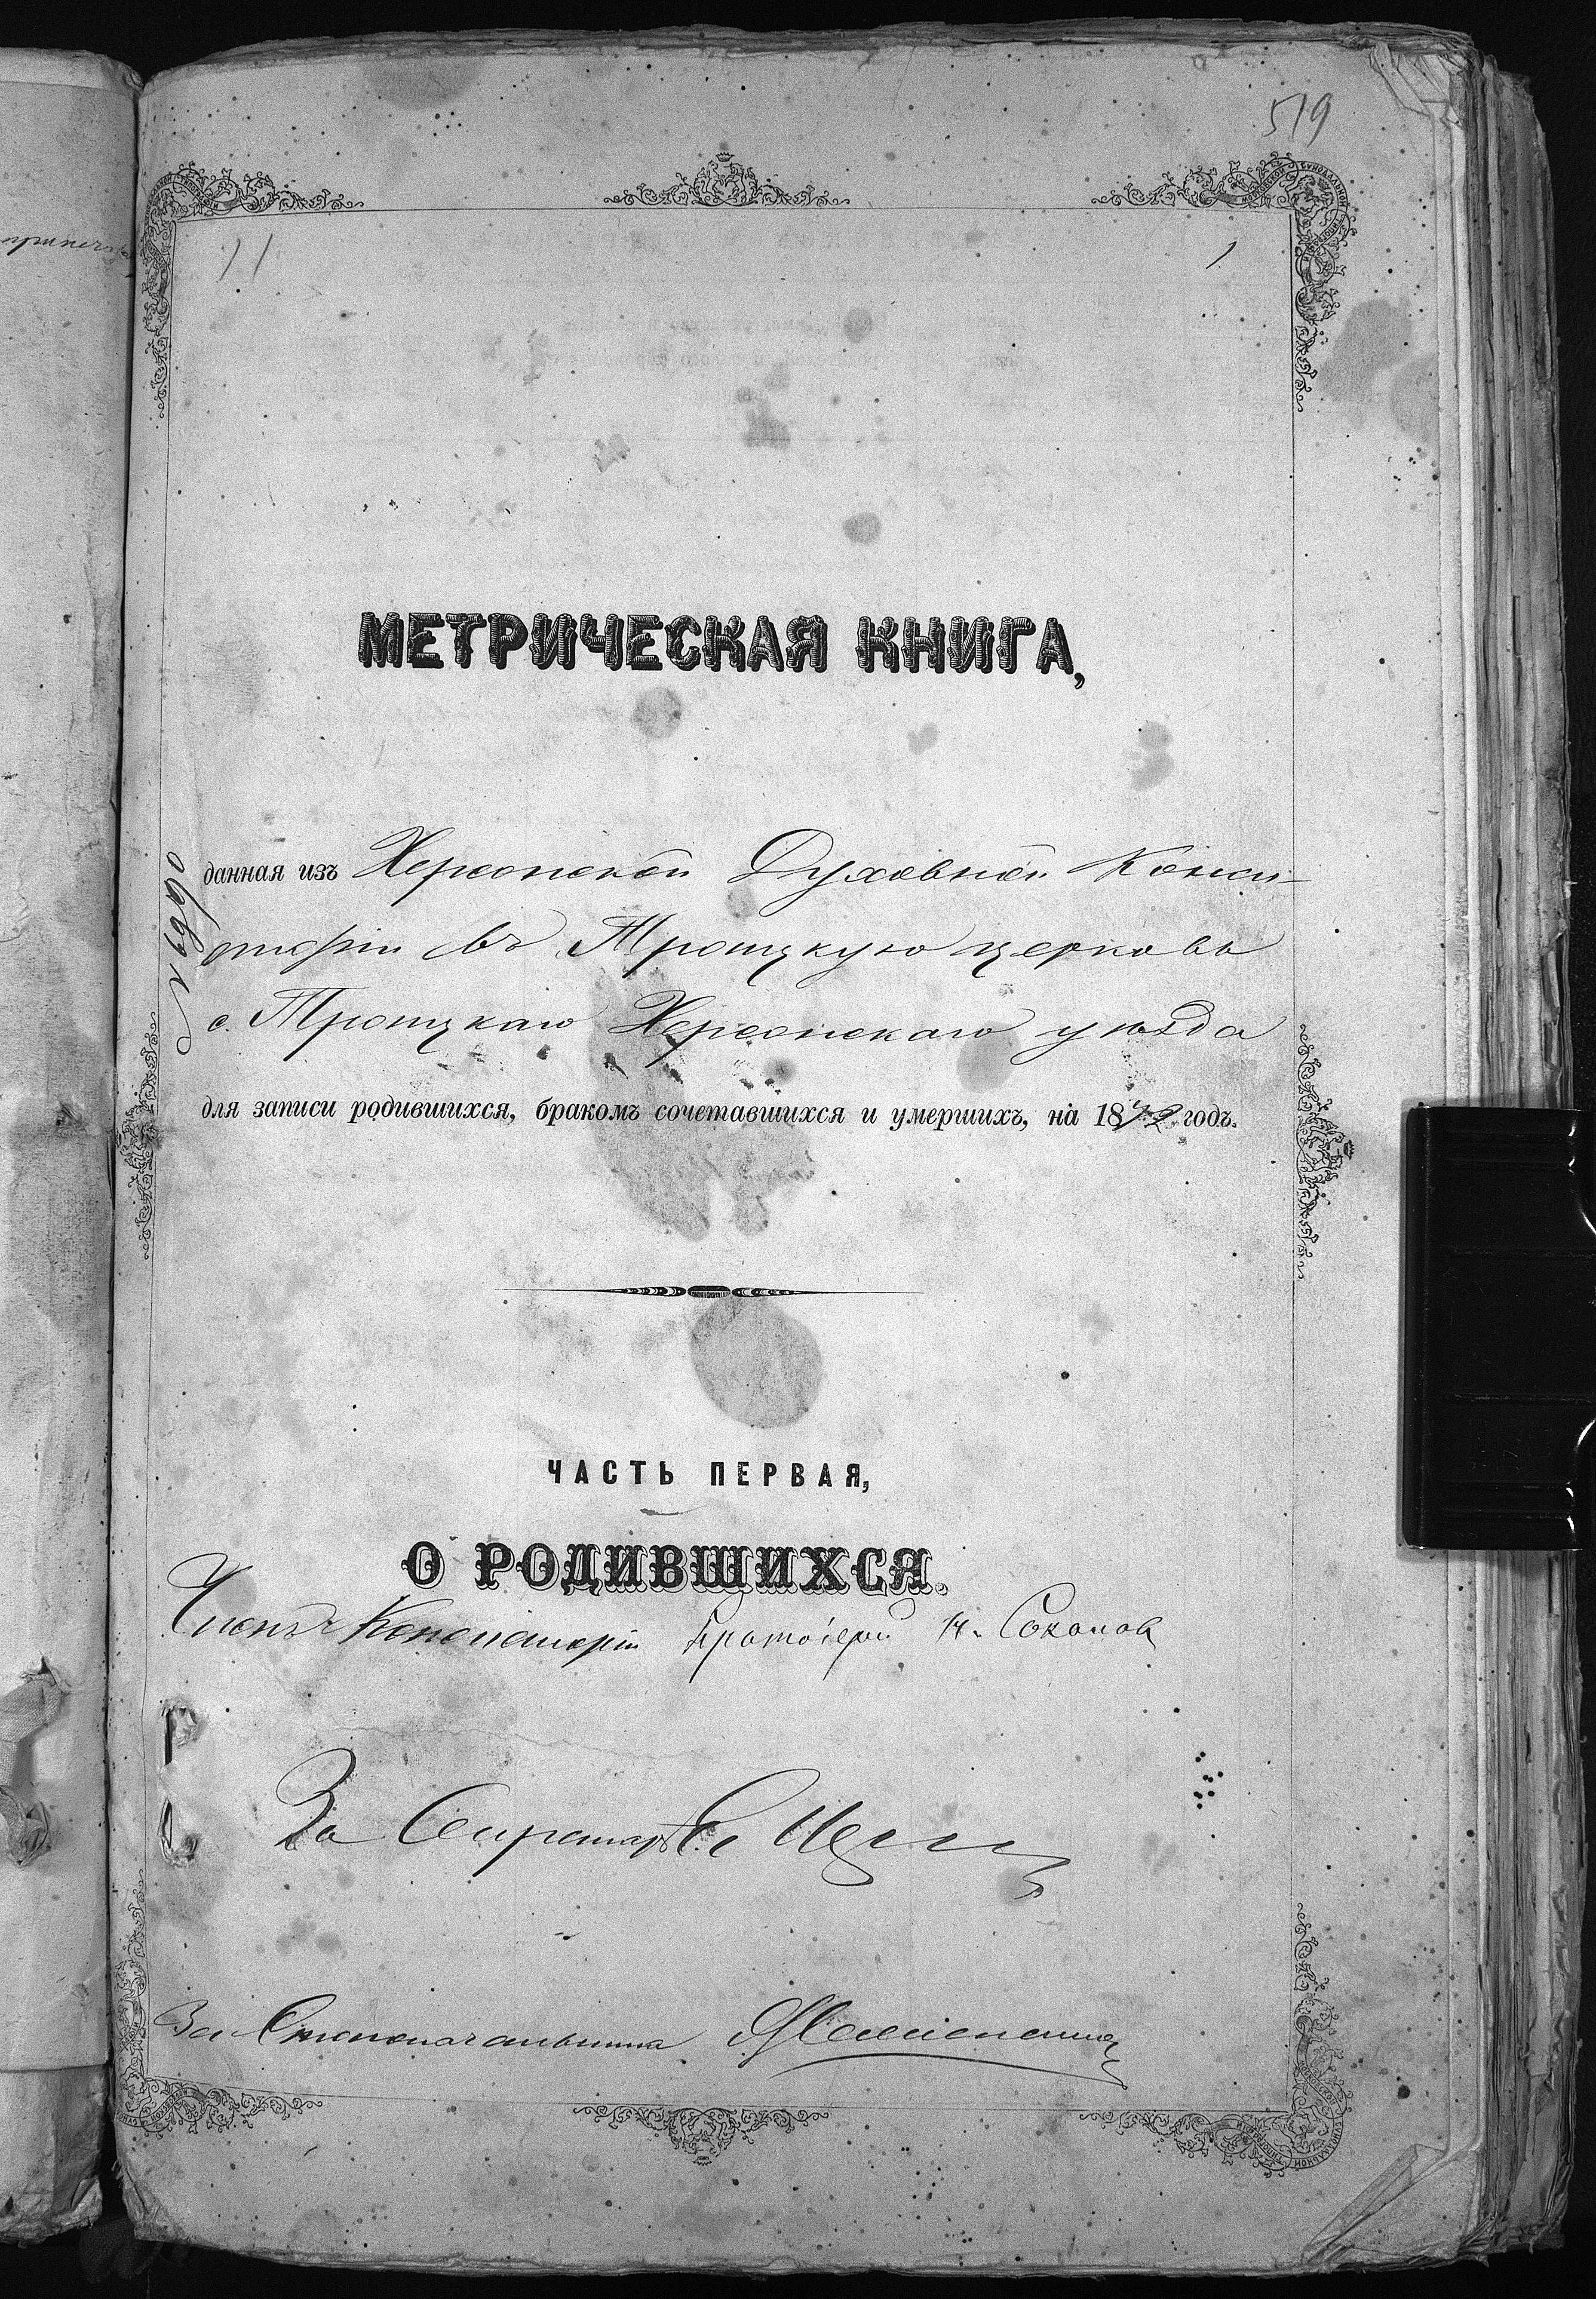 519
11 1
МЕТРИЧЕСКАЯ КНИГА,
данная изъ Херсонской Духовной Конси-
сторіи въ Троицкую церковь
с. Троицкаго Херсонскаго уѣзда
для записи родившихся, бракомъ сочетавшихся и умершихъ, на 1872 годъ.
ЧАСТЬ ПЕРВАЯ,
О РОДИВШИХСЯ.
Членъ Консисторіи Протоіерей Соколов
За Секретаря
За Столоначальника